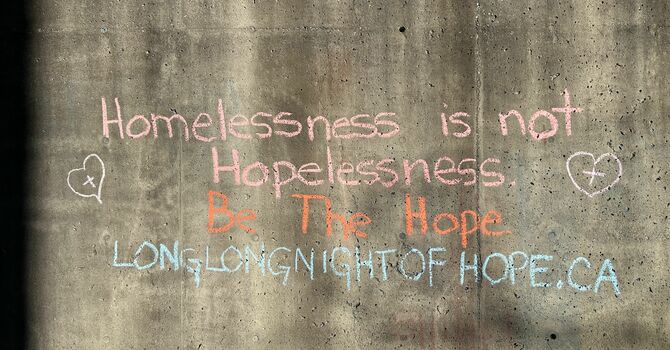 Homelessness is not
Hopelessness.
Be The Hope
LONGLONGNIGHTOF HOPE.CA